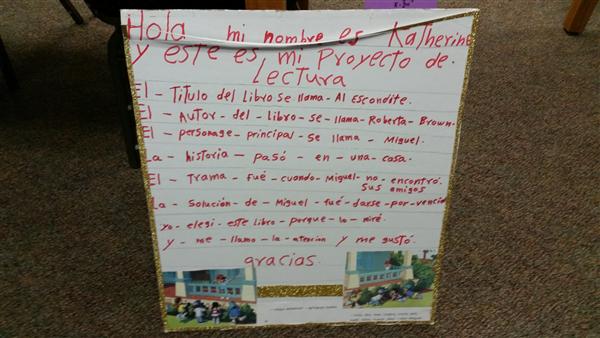 Hola mi nombre es Katherine
y este es mi Proyecto de
Lectura
El - Título del Libro Se llama - Al Escondite.
El - Autor - del - Libro - se - llama - Roberta - Brown.
El - personage - principal - se llama - Miguel.
La - historia - pasó - en - una - casa.
El - trama - fué - cuando - Miguel - no - encontró.
sus amigos
La - Solución - de - Miguel - fué - darse - por - vencid
Yo - elegi - este Libro - porque - lo - miré.
y - me - llamo - la - atención y me gustó.
gracias.